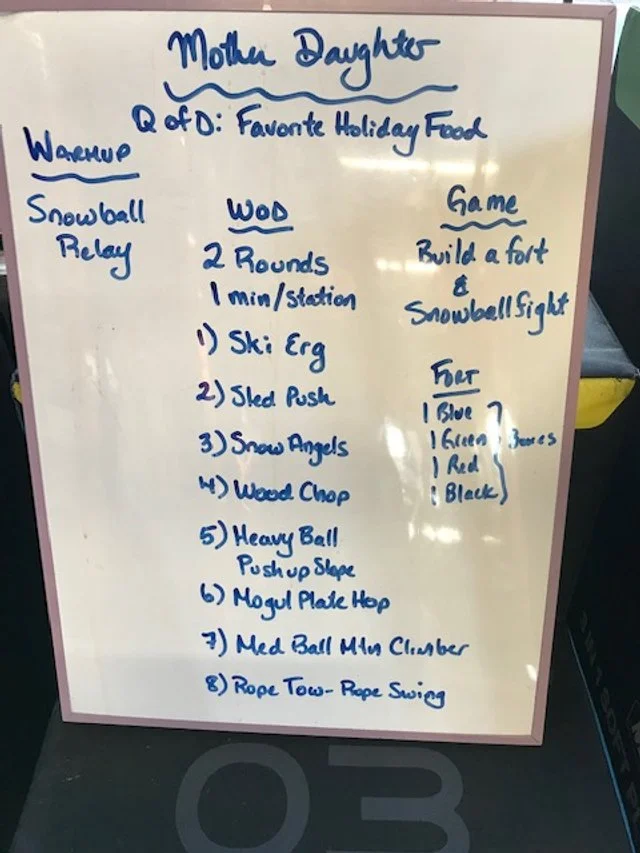 Mother Daughter
Q of D: Favorite Holiday Food
WARMUP
Snowball
Relay
WOD
2 Rounds
1 min/station
1) Ski Erg
2) Sled Push
3) Snow Angels
4) Wood Chop
5) Heavy Ball
Push up Slope
6) Mogul Plate Hop
7) Med Ball Mtn Climber
8) Rope Tow - Rope Swing
Game
Build a fort
&
Snowball fight
FORT
1 Blue
1 Green Boxes
1 Red
1 Black
03